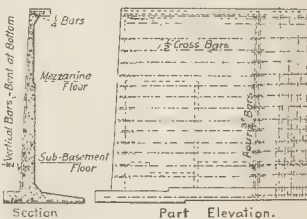 ¼ Bars
½ Vertical Bars,-Bent at Bottom
Mezzanine
Floor
Sub-Basement
Floor
Section
½ Cross Bars
Four ¾" Bars
Part Elevation.